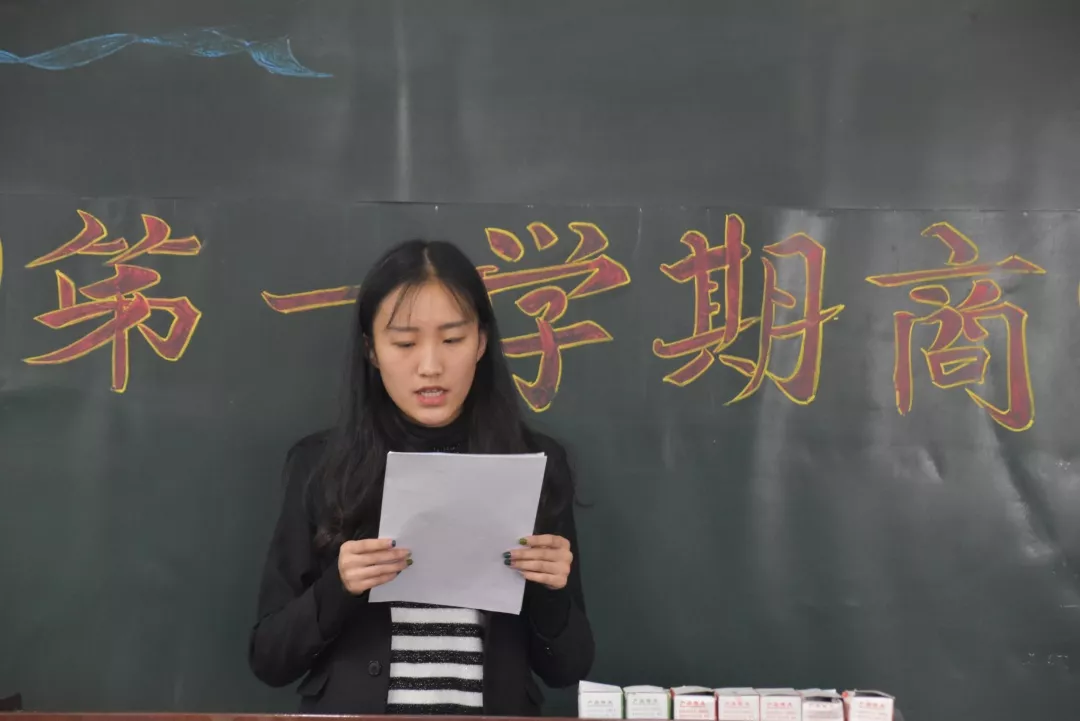 第一学期商